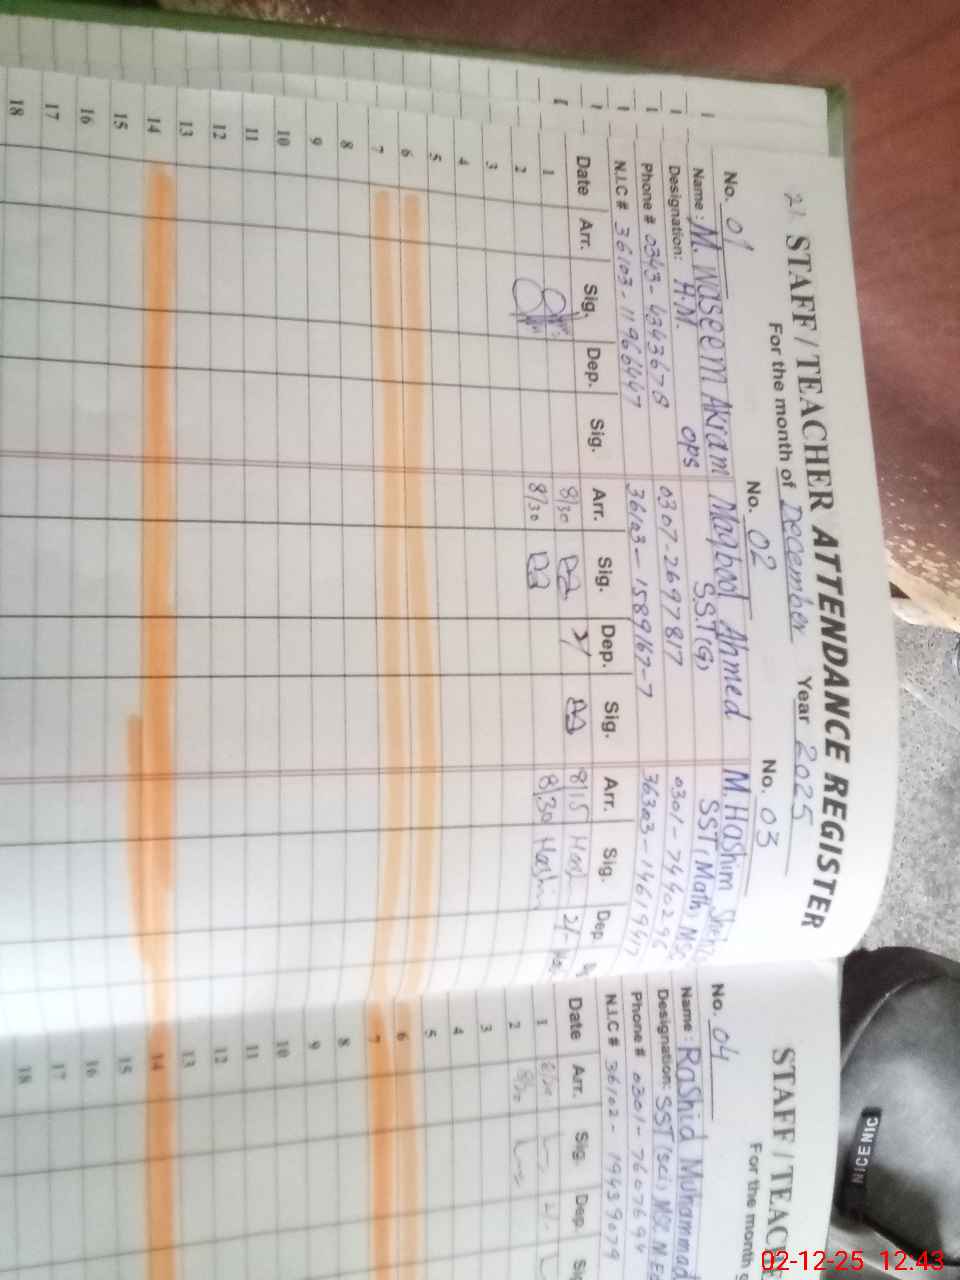 2). STAFF / TEACHER ATTENDANCE REGISTER
For the month of December Year 2025
No. 01 No. 02 No. 03
Name : M. Waseem Akram Maqbool Ahmed M. Hashim
Designation: H.M. OPS S.S.T(G) SST(Math) MSC
Phone # 0343-4343678 0307-2697817 0301-7440296
N.I.C # 36103-11966447 36103-1589167-7 36303-14619417
Date Arr. Sig. Dep. Sig. Arr. Sig. Dep. Sig. Arr. Sig. Dep
1 8/30 8/15 Hash 2/-
2 8/30 8/30 Hashim
3
4
5
6
7
8
9
10
11
12
13
14
15
16
17
18
STAFF / TEAC
For the month
No. 04
Name : Rashid Muhammad
Designation: SST(sci) MSC
Phone # 0301-7607694
N.I.C # 36102-19439079
Date Arr. Sig. Dep.
1
2
3
4
5
6
7
8
9
10
11
12
13
14
15
16
17
18
NICENIC
02-12-25 12:43